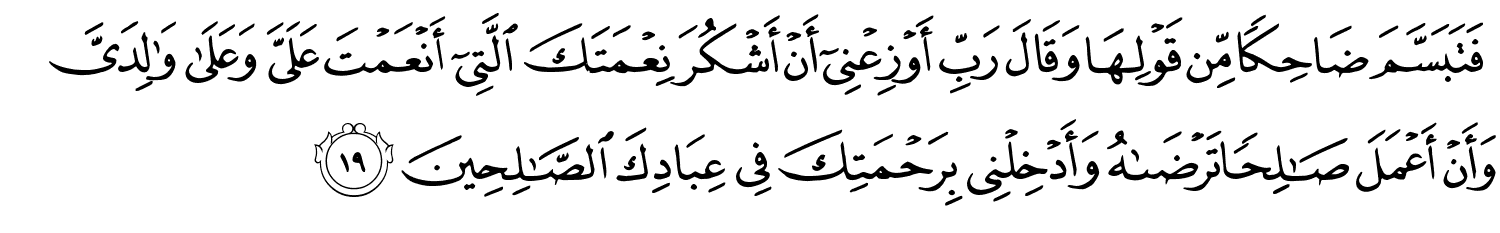 فَتَبَسَّمَ ضَاحِكًا مِّن قَوْلِهَا وَقَالَ رَبِّ أَوْزِعْنِىٓ أَنْ أَشْكُرَ نِعْمَتَكَ ٱلَّتِىٓ أَنْعَمْتَ عَلَىَّ وَعَلَىٰ وَٰلِدَىَّ
وَأَنْ أَعْمَلَ صَٰلِحًا تَرْضَىٰهُ وَأَدْخِلْنِى بِرَحْمَتِكَ فِى عِبَادِكَ ٱلصَّٰلِحِينَ ١٩